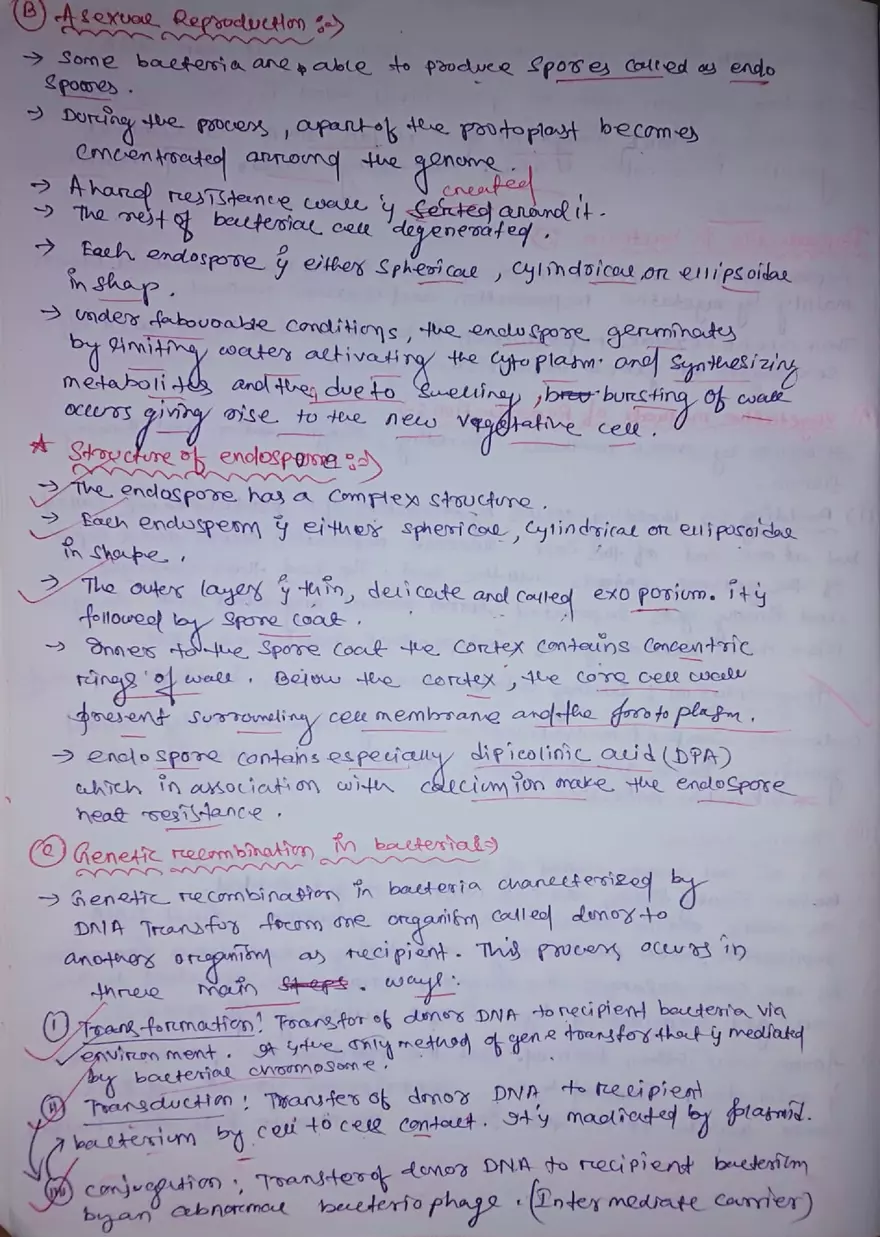 (B) Asexual Reproduction :→
→ Some bacteria are able to produce Spores called as endo
Spores.
→ During the process, apart of the protoplast becomes
concentrated arround the genome.
created
→ A hard resistance wall is arand it.
→ The rest of bacterial cell degenerated.
→ Each endospore is either Spherical, Cylindrical or ellipsoidal
in shap.
→ under fabourable conditions, the endospore germinates
by water activating the cytoplasm. and Synthesizing
metabolites and then due to swelling, bursting of wall
occurs giving rise to the new vegetative cell.
* Structure of endospore :→
→ The endospore has a complex structure.
→ Each endosperm is either spherical, Cylindrical or elliposoidal
in shape.
→ The outer layer is thin, delicate and called exo porium. it is
followed by spore coat.
→ Inner to the Spore coat the cortex contains concentric
rings of wall. Below the cortex, the core cell wall
present surrounding cell membrane and the protoplasm.
→ endospore contains especially dipicolinic acid (DPA)
which in association with calcium ion make the endospore
heat resistance.
(C) Genetic recombination in bacterial→
→ Genetic recombination in bacteria charecterized by
DNA Transfor from one organism called donor to
another organism as recipient. This process occurs in
three main steps. ways:
(i) Transformation: Transfor of donor DNA to recipient bacteria via
environment. It is the only method of gene transfor that is mediated
by bacterial chromosome.
(ii) Transduction: Transfer of donor DNA to recipient
bacterium by cell to cell contact. It is madiated by plasmid.
(iii) conjugation: Transfer of donor DNA to recipient bacterium
by an abnormal bacteriophage. (Intermediate carrier)